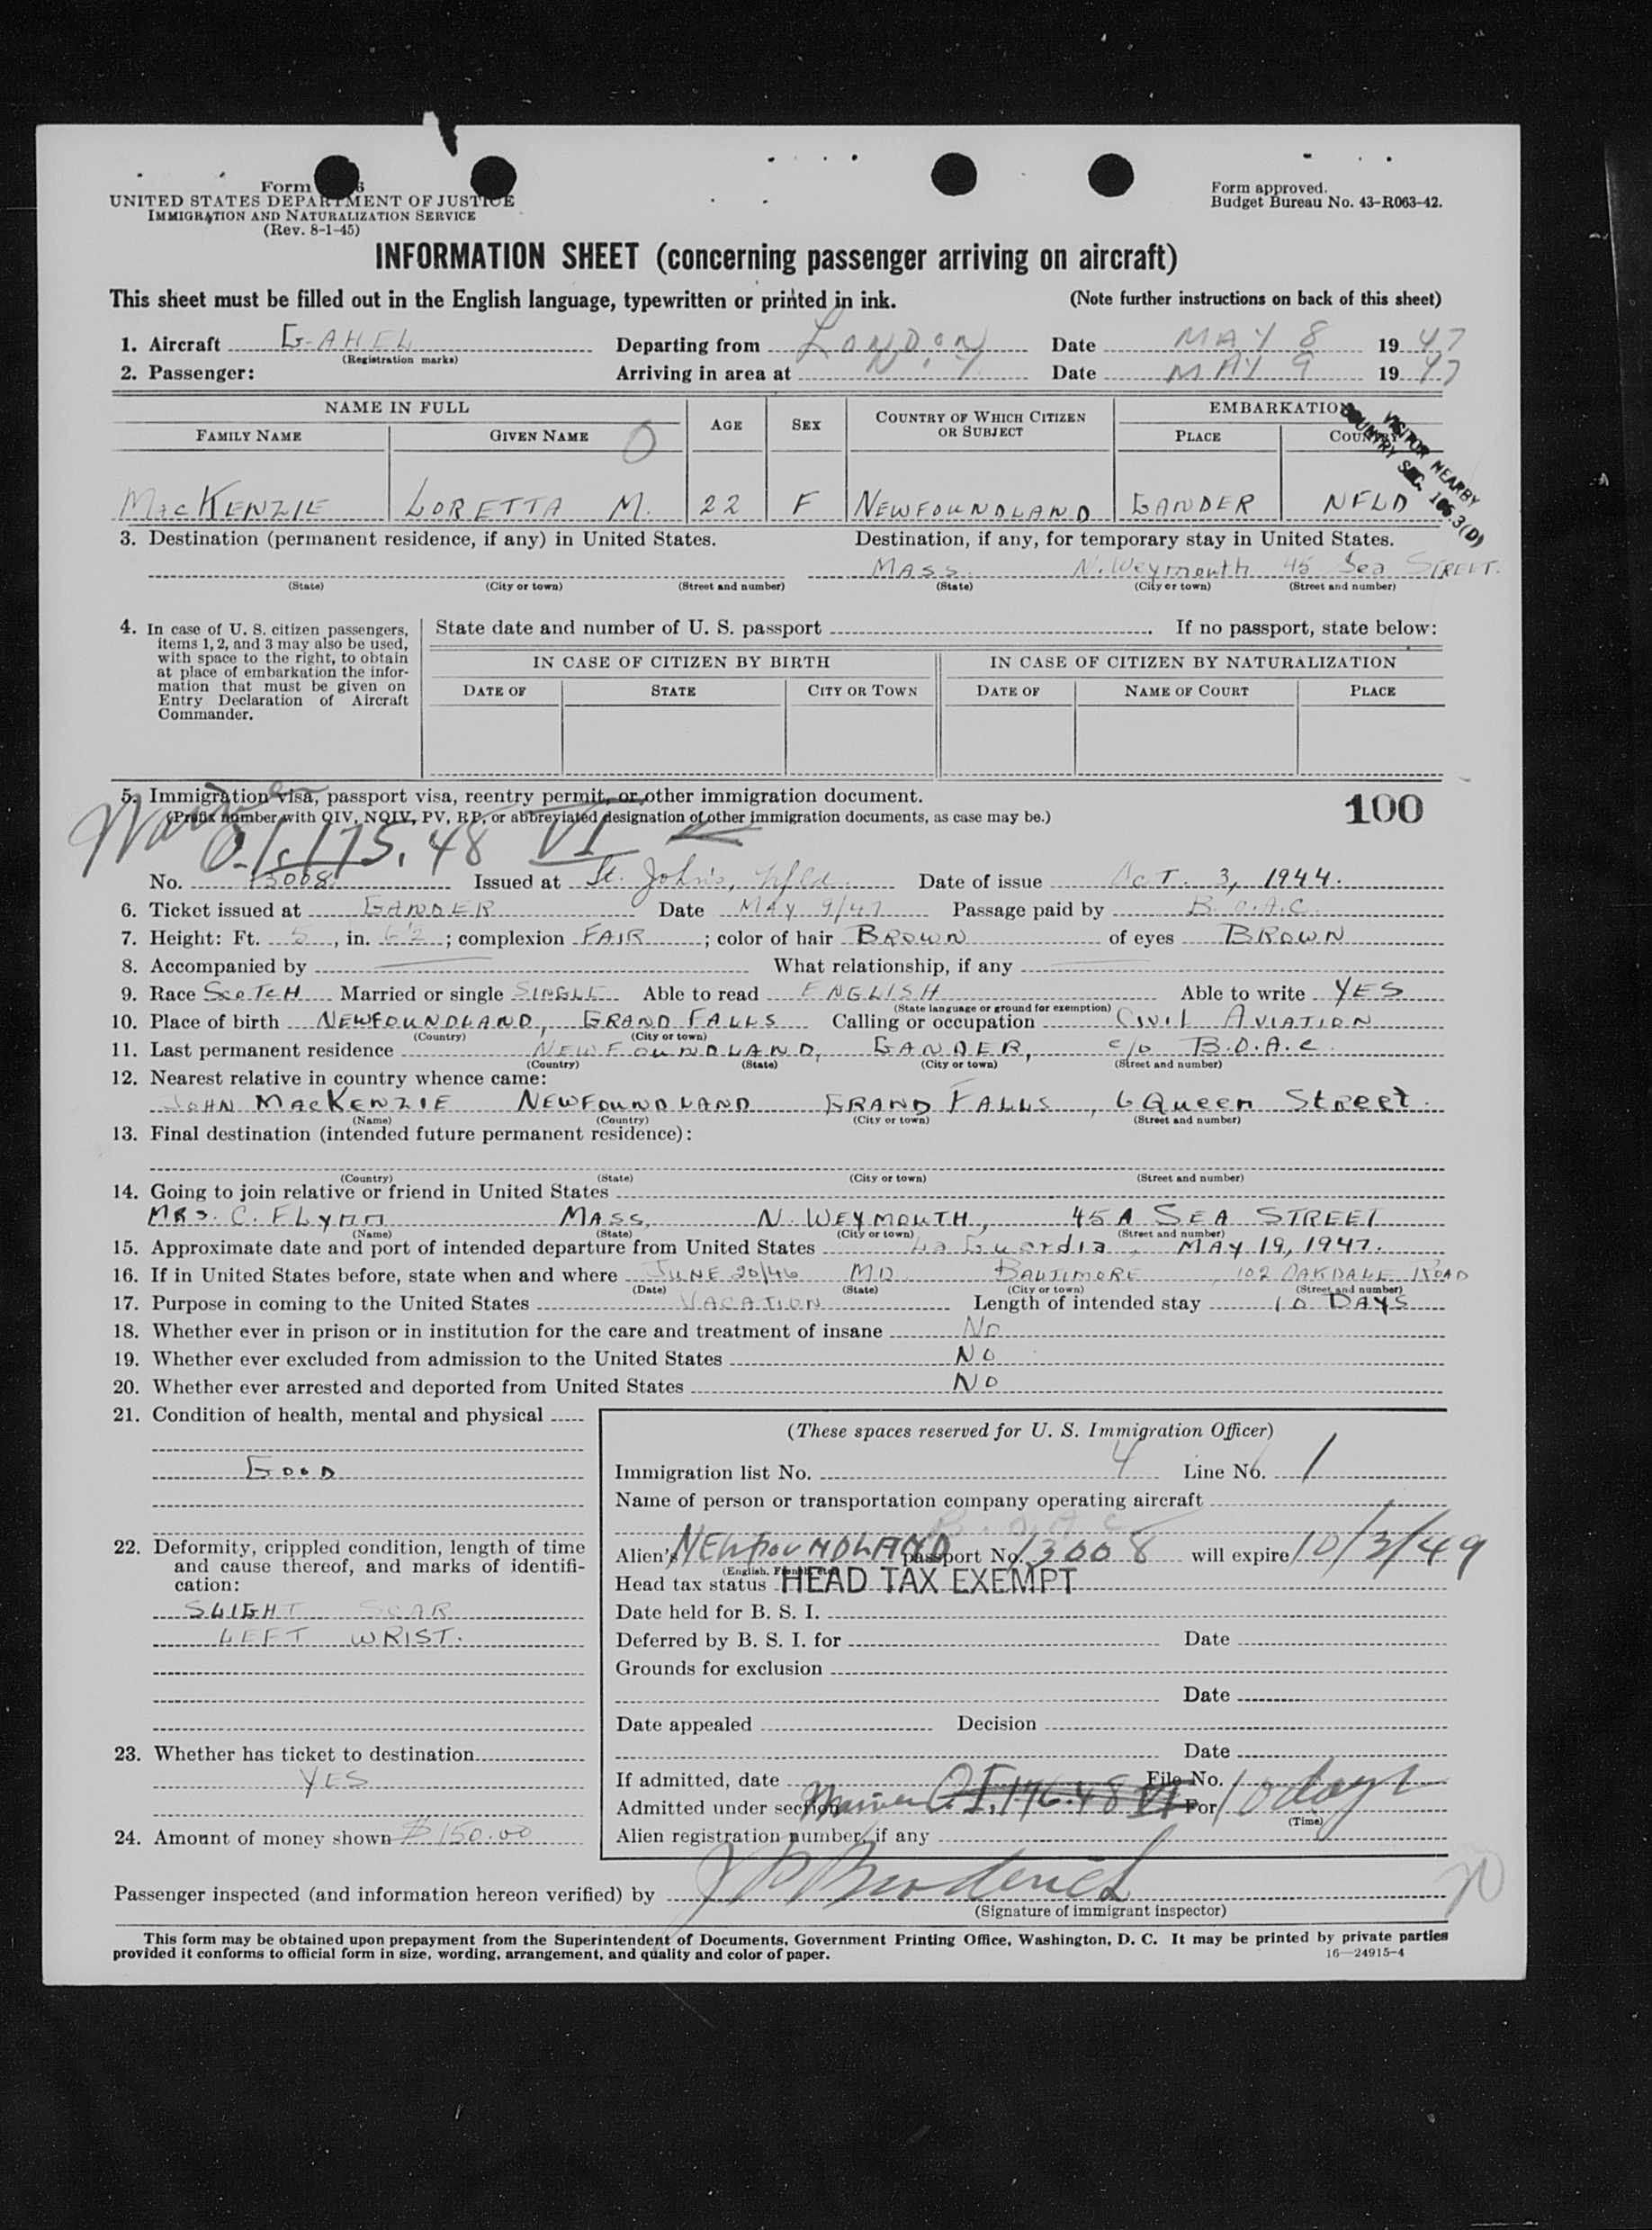 Form
UNITED STATES DEPARTMENT OF JUSTICE
IMMIGRATION AND NATURALIZATION SERVICE
(Rev. 8-1-45)
Form approved.
Budget Bureau No. 43-R063-42.
INFORMATION SHEET (concerning passenger arriving on aircraft)
This sheet must be filled out in the English language, typewritten or printed in ink. (Note further instructions on back of this sheet)
1. Aircraft G-AHEL Departing from LONDON Date MAY 8 1947
(Registration marks)
2. Passenger: Arriving in area at N.Y Date MAY 9 1947
NAME IN FULL AGE SEX COUNTRY OF WHICH CITIZEN OR SUBJECT EMBARKATION
FAMILY NAME GIVEN NAME PLACE COUNTRY
VISITOR NEARBY
COUNTRY SEC. 106.3(D)
MACKENZIE LORETTA M. 22 F NEWFOUNDLAND GANDER NFLD
3. Destination (permanent residence, if any) in United States. Destination, if any, for temporary stay in United States.
MASS. N. Weymouth 45 Sea STREET.
(State) (City or town) (Street and number) (State) (City or town) (Street and number)
4. In case of U. S. citizen passengers, items 1, 2, and 3 may also be used, with space to the right, to obtain at place of embarkation the information that must be given on Entry Declaration of Aircraft Commander.
State date and number of U. S. passport . If no passport, state below:
IN CASE OF CITIZEN BY BIRTH IN CASE OF CITIZEN BY NATURALIZATION
DATE OF STATE CITY OR TOWN DATE OF NAME OF COURT PLACE
5. Immigration visa, passport visa, reentry permit, or other immigration document. 100
(Prefix number with QIV, NQIV, PV, RP, or abbreviated designation of other immigration documents, as case may be.)
Waiver O.I. 175.48 VI
No. 13008 Issued at St. John's, Nfld. Date of issue OCT. 3, 1944.
6. Ticket issued at GANDER Date MAY 9/47 Passage paid by B.O.A.C.
7. Height: Ft. 5, in. 6½; complexion FAIR; color of hair BROWN of eyes BROWN
8. Accompanied by What relationship, if any
9. Race SCOTCH Married or single SINGLE Able to read ENGLISH Able to write YES
(State language or ground for exemption)
10. Place of birth NEWFOUNDLAND, GRAND FALLS Calling or occupation CIVIL AVIATION
(Country) (City or town)
11. Last permanent residence NEWFOUNDLAND, GANDER, c/o B.O.A.C.
(Country) (State) (City or town) (Street and number)
12. Nearest relative in country whence came:
JOHN MACKENZIE NEWFOUNDLAND GRAND FALLS, 6 Queen Street.
(Name) (Country) (City or town) (Street and number)
13. Final destination (intended future permanent residence):
(Country) (State) (City or town) (Street and number)
14. Going to join relative or friend in United States
MRS. C. FLYNN MASS. N. WEYMOUTH, 45A SEA STREET
(Name) (State) (City or town) (Street and number)
15. Approximate date and port of intended departure from United States La Guardia, MAY 19, 1947.
16. If in United States before, state when and where JUNE 20/46 MD. BALTIMORE, 102 OAKDALE ROAD
(Date) (State) (City or town) (Street and number)
17. Purpose in coming to the United States VACATION Length of intended stay 10 DAYS
18. Whether ever in prison or in institution for the care and treatment of insane NO
19. Whether ever excluded from admission to the United States NO
20. Whether ever arrested and deported from United States NO
21. Condition of health, mental and physical
GOOD
22. Deformity, crippled condition, length of time and cause thereof, and marks of identification:
SLIGHT SCAR
LEFT WRIST.
23. Whether has ticket to destination
YES
24. Amount of money shown $150.00
(These spaces reserved for U. S. Immigration Officer)
Immigration list No. 4 Line No. 1
Name of person or transportation company operating aircraft
B.O.A.C
Alien's NEWFOUNDLAND passport No. 13008 will expire 10/3/49
(English, French, etc.)
Head tax status HEAD TAX EXEMPT
Date held for B. S. I.
Deferred by B. S. I. for Date
Grounds for exclusion
Date
Date appealed Decision
Date
If admitted, date File No.
Admitted under section Waiver O.I. 176.48 VI For 10 days
(Time)
Alien registration number, if any
Passenger inspected (and information hereon verified) by Broderick
(Signature of immigrant inspector)
This form may be obtained upon prepayment from the Superintendent of Documents, Government Printing Office, Washington, D. C. It may be printed by private parties
provided it conforms to official form in size, wording, arrangement, and quality and color of paper. 16—24915-4